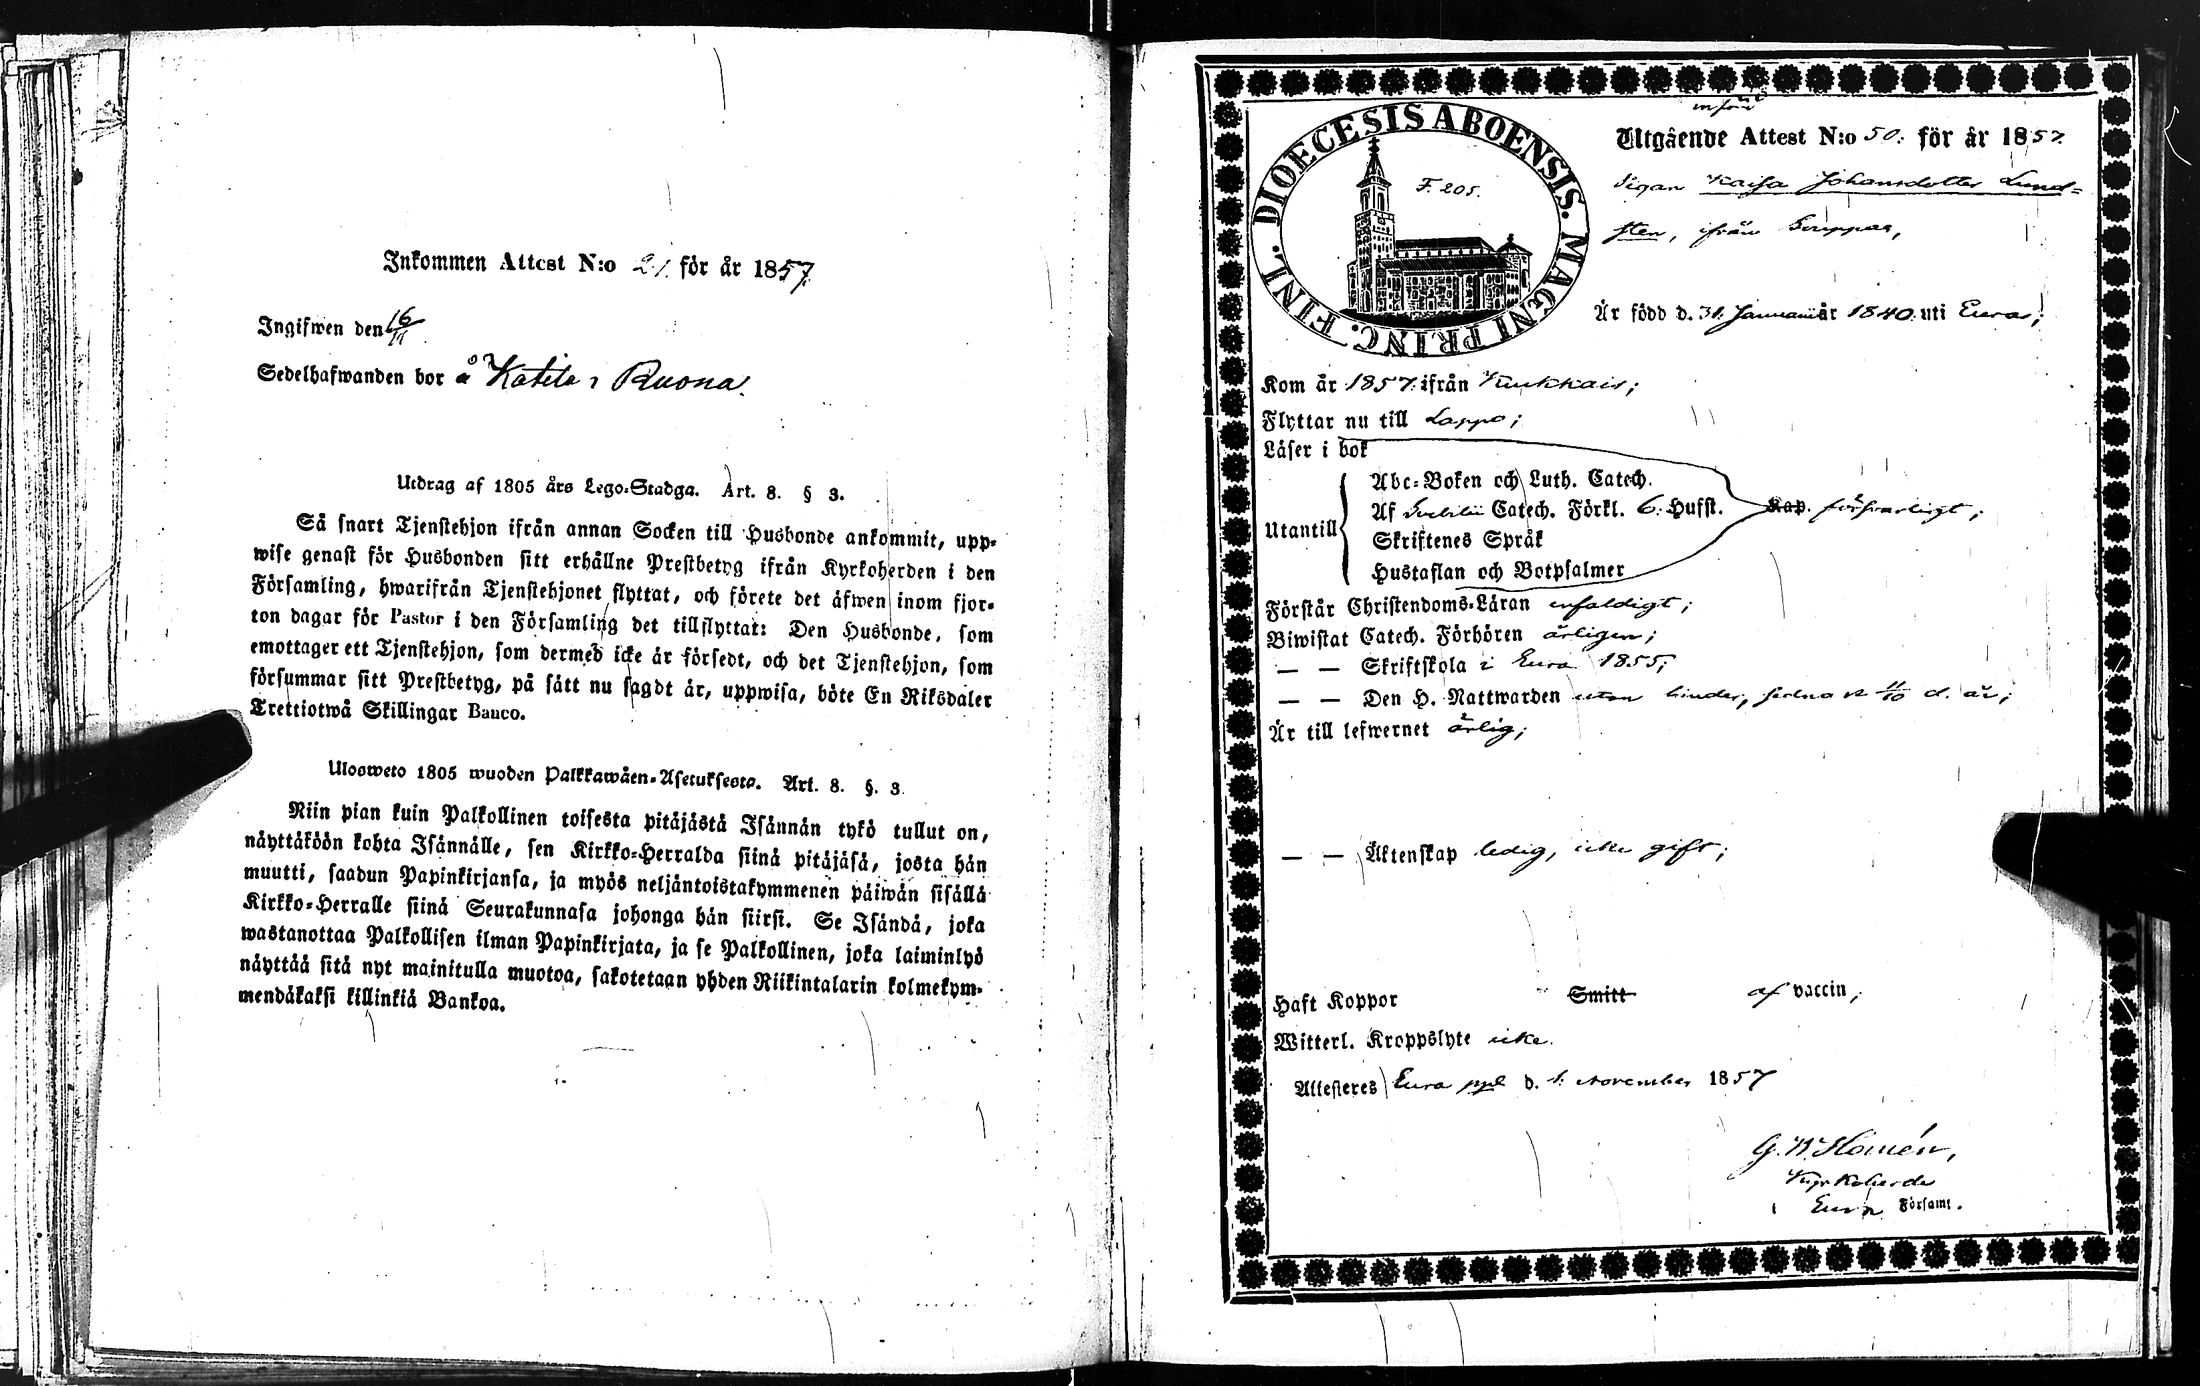 Inkommen Attest N:o 21. för år 1857.
Ingifwen den 16/11
Sedelhafwanden bor å Katila, Ruona.
Utdrag af 1805 års Lego=Stadga. Art. 8. § 3.
Så snart Tjenstehjon ifrån annan Socken till Husbonde ankommit, upp=
wise genast för Husbonden sitt erhållne Prestbetyg ifrån Kyrkoherden i den
Församling, hwarifrån Tjenstehjonet flyttat, och förete det äfwen inom fjor=
ton dagar för Pastor i den Församling det tillflyttat: Den Husbonde, som
emottager ett Tjenstehjon, som dermed icke är försedt, och det Tjenstehjon, som
försummar sitt Prestbetyg, på sätt nu sagdt är, uppwisa, böte En Riksdaler
Trettiotwå Skillingar Banco.
Ulosweto 1805 wuoden Palkkawäen=Asetuksesta. Art. 8. §. 3
Niin pian kuin Palkollinen toisesta pitäjästä Isännän tykö tullut on,
näyttäköön kohta Isännälle, sen Kirkko=Herralda siinä pitäjäsä, josta hän
muutti, saadun Papinkirjansa, ja myös neljäntoistakymmenen päiwän sisällä
Kirkko=Herralle siinä Seurakunnasa johonga hän siirsi. Se Isändä, joka
wastanottaa Palkollisen ilman Papinkirjata, ja se Palkollinen, joka laiminlyö
näyttää sitä nyt mainitulla muotoa, sakotetaan yhden Riikintalarin kolmekym=
mendäkaksi killinkiä Bankoa.
DIOECESIS ABOENSIS. MAGNI PRINC. FINL.
F. 205.
införd
Utgående Attest N:o 50. för år 1857.
Pigan Kaisa Johansdotter Lund=
sten, ifrån
Är född d. 31. Januari år 1840. uti Eura;
Kom år 1857. ifrån Kiukkais;
Flyttar nu till Lappo;
Läser i bok
Utantill
Abc=Boken och Luth. Catech.
Af Svebilii Catech. Förkl. 6. Hufst. Kap. försvarligt;
Skriftenes Språk
Hustaflan och Botpsalmer
Förstår Christendoms=Läran enfaldigt;
Biwistat Catech. Förhören årligen;
— — Skriftskola i Eura 1855;
— — Den H. Nattwarden utan hinder, sedna st 11/10 d. år;
Är till lefwernet ärlig;
— — Äktenskap ledig, icke gift;
Haft Koppor Smitt af vaccin;
Witterl. Kroppslyte icke.
Attesteres Eura ppl d. 1. November 1857
G. W. Homén,
Kyrkoherde
i Eura Församl.